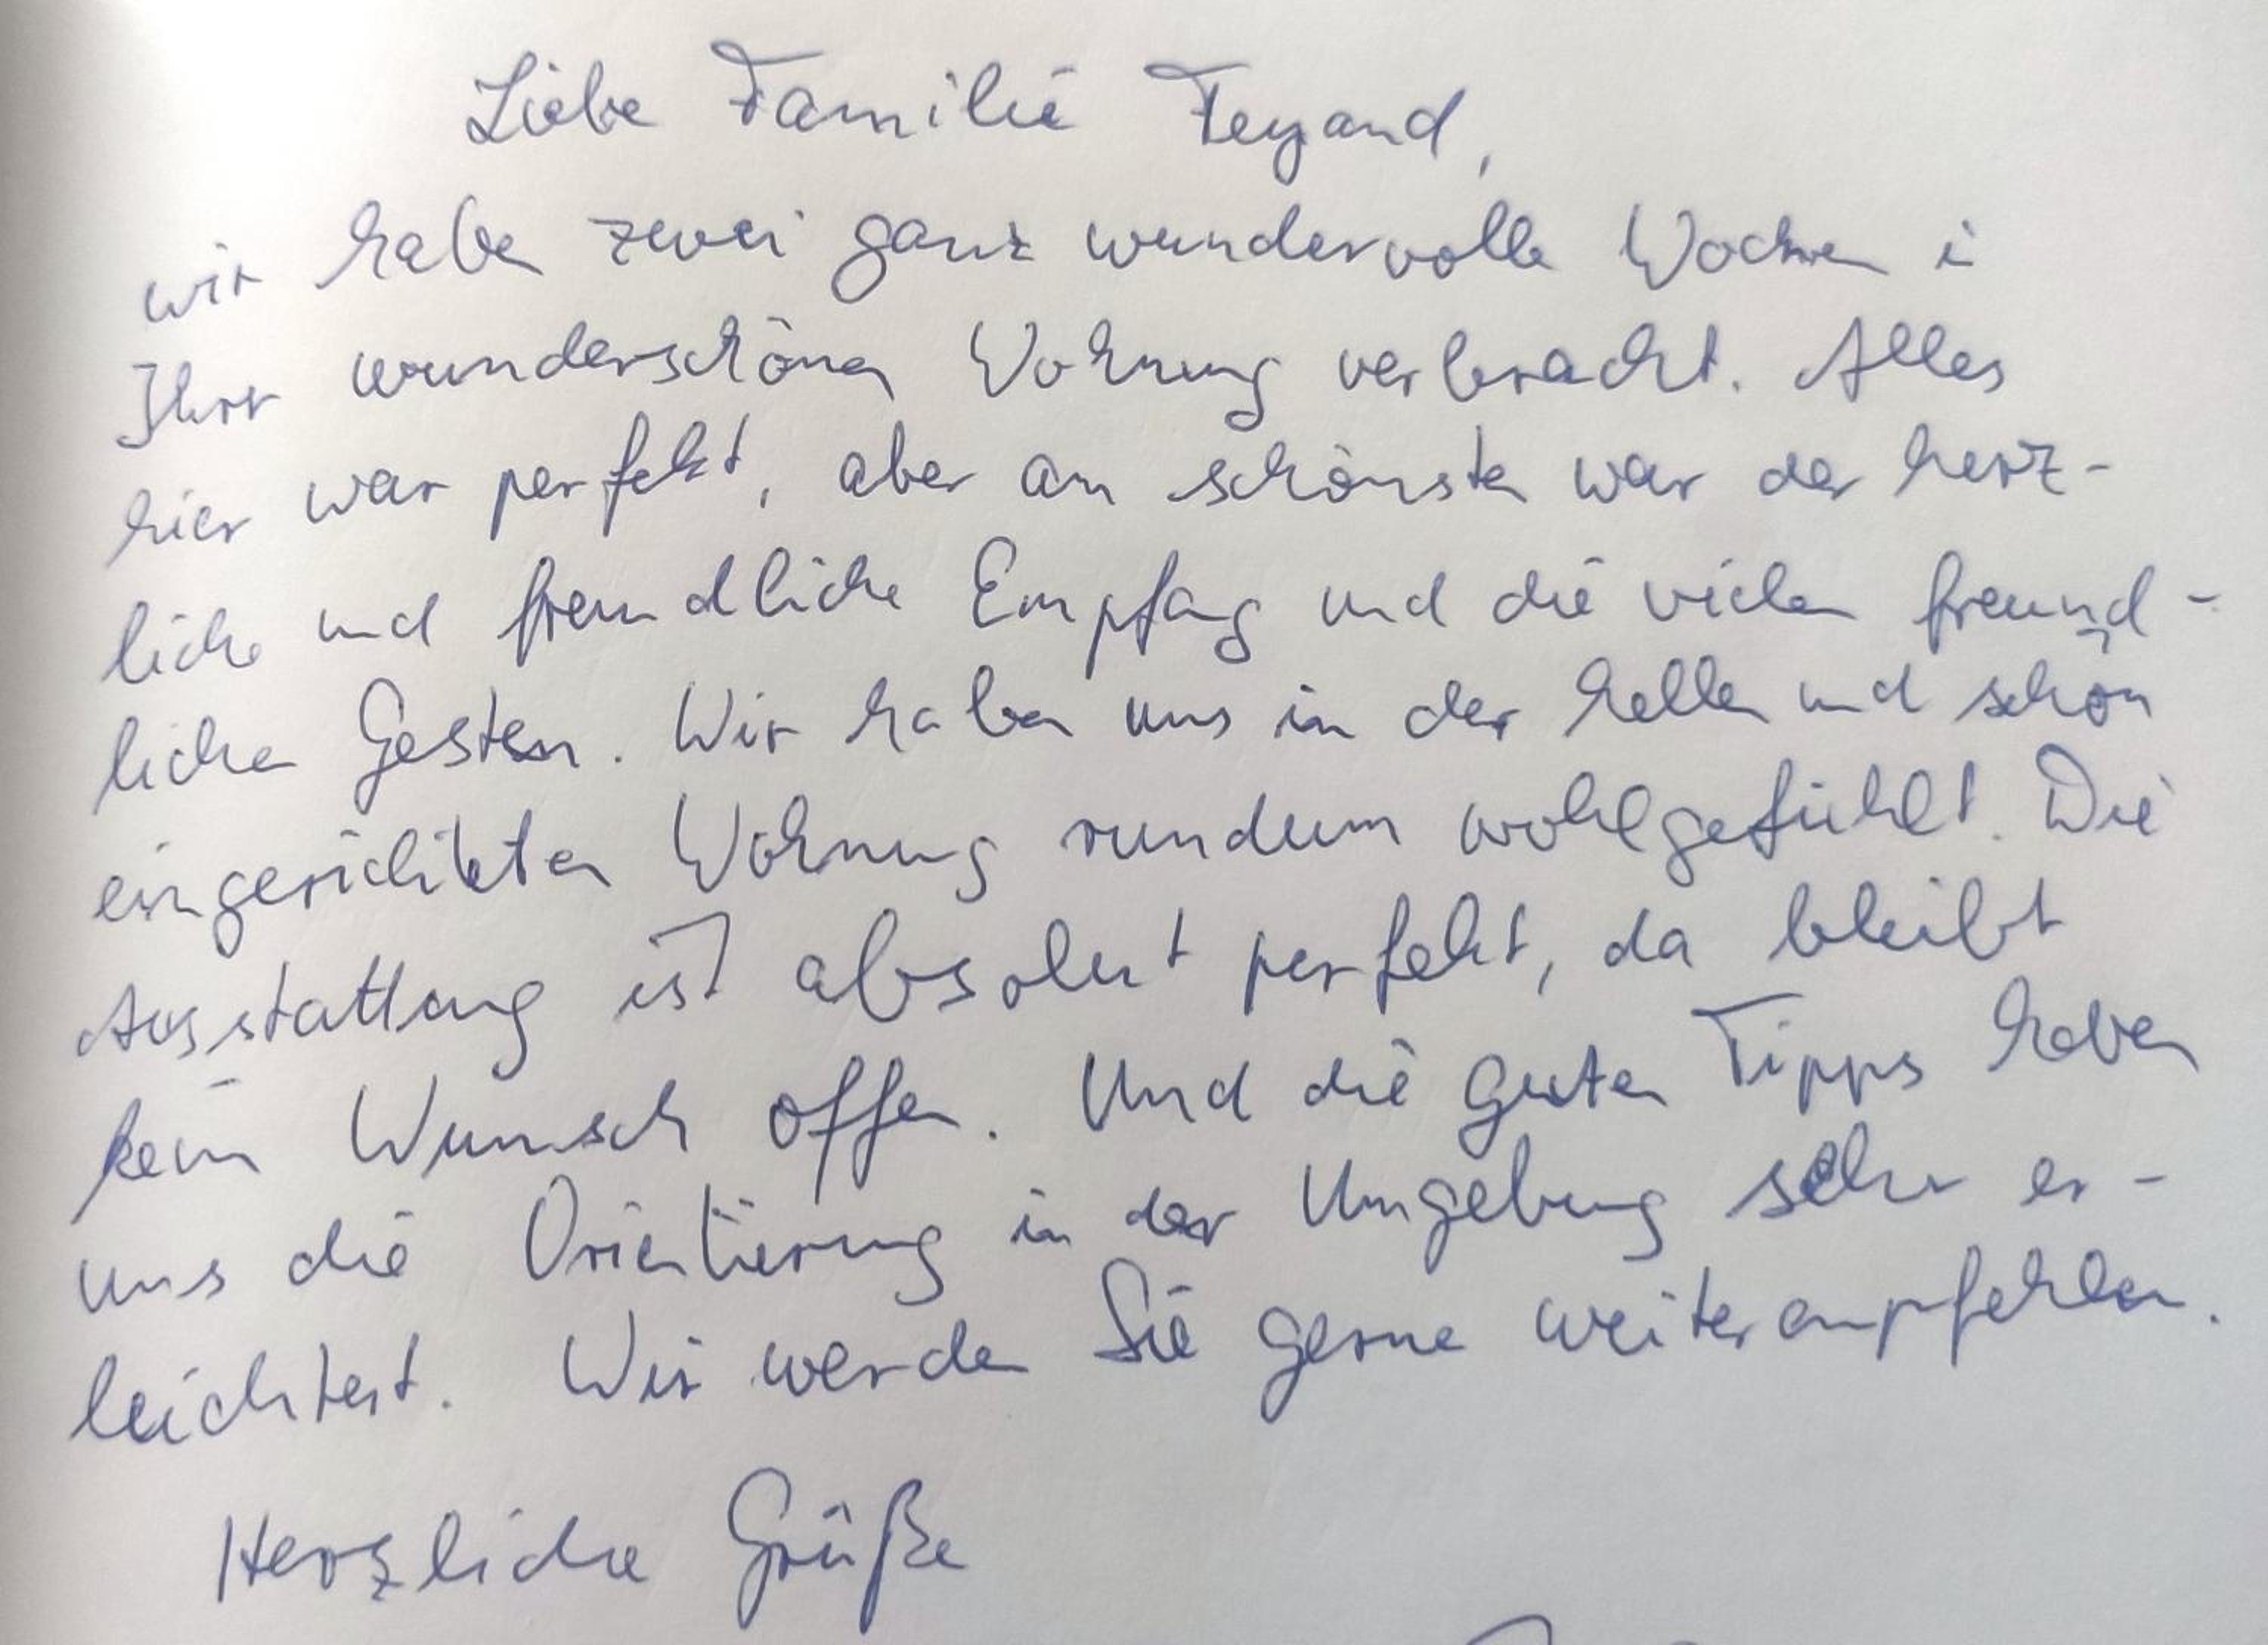 Liebe Familie Feyand,
wir haben zwei ganz wundervolle Wochen in
Ihrer wunderschönen Wohnung verbracht. Alles
hier war perfekt, aber am schönsten war der herz-
liche und freundliche Empfang und die vielen freund-
lichen Gesten. Wir haben uns in der hellen und schön
eingerichteten Wohnung rundum wohlgefühlt. Die
Ausstattung ist absolut perfekt, da bleibt
kein Wunsch offen. Und die guten Tipps haben
uns die Orientierung in der Umgebung sehr er-
leichtert. Wir werden Sie gerne weiterempfehlen.
Herzliche Grüße